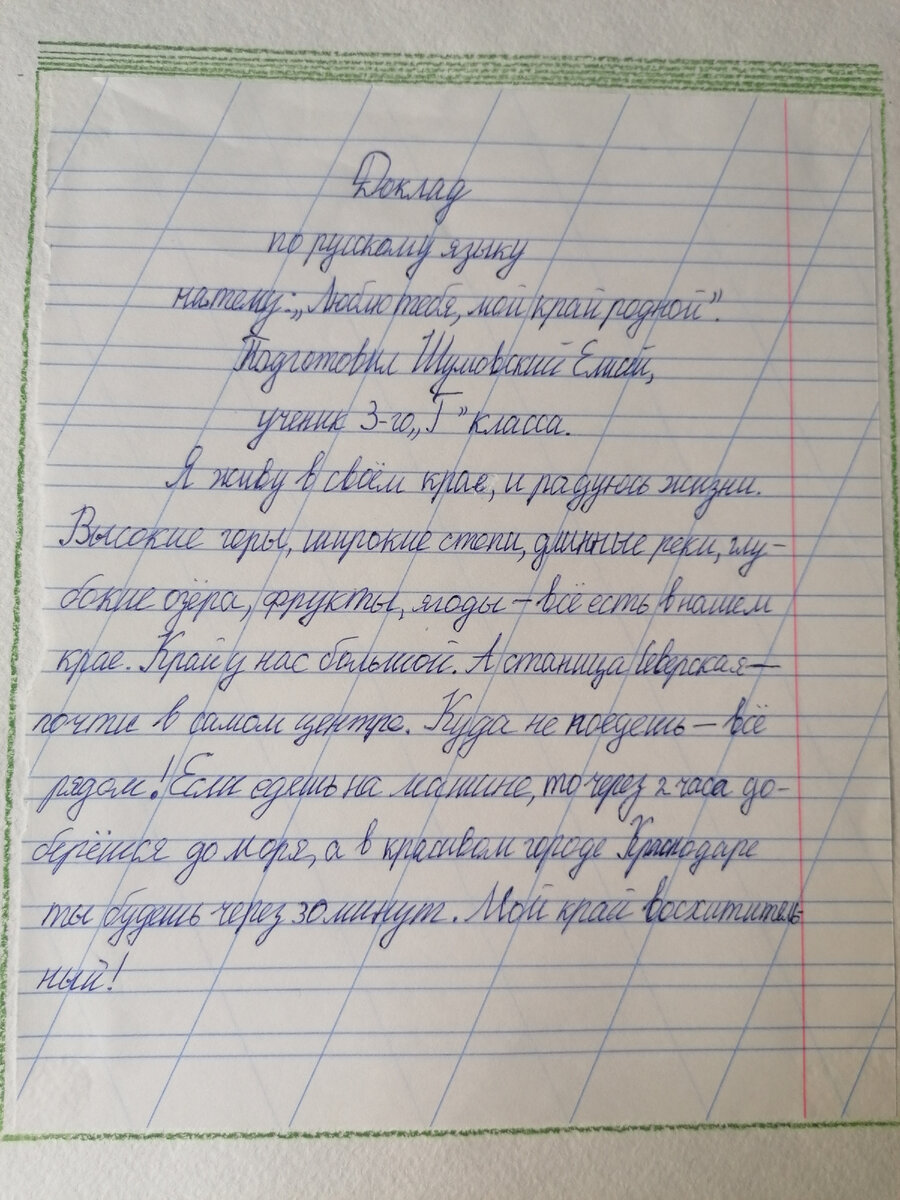 Доклад
по русскому языку
на тему: „Люблю тебя, мой край родной".
Подготовил Шумовский Елисей,
ученик 3-го „Г" класса.
Я живу в своём крае, и радуюсь жизни.
Высокие горы, широкие степи, длинные реки, глу-
бокие озёра, фрукты, ягоды – всё есть в нашем
крае. Край у нас большой. А станица Северская –
почти в самом центре. Куда не поедешь – всё
рядом! Если едешь на машине, то через 2 часа до-
берёшся до моря, а в красивом городе Краснодаре
ты будешь через 30 минут. Мой край восхититель-
ный!